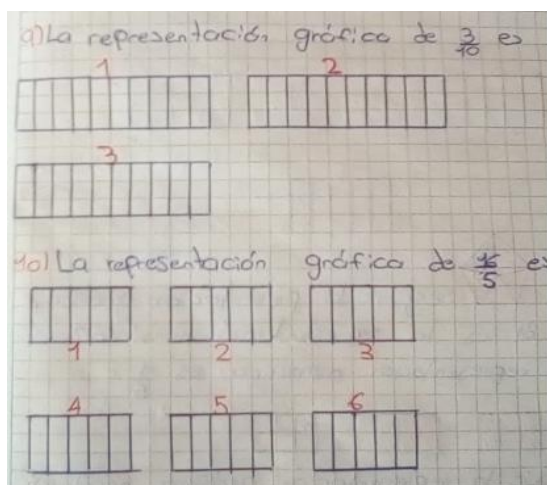 9) La representación gráfica de 3/10 es
1 2
3
10) La representación gráfica de 16/5 es
1 2 3
4 5 6